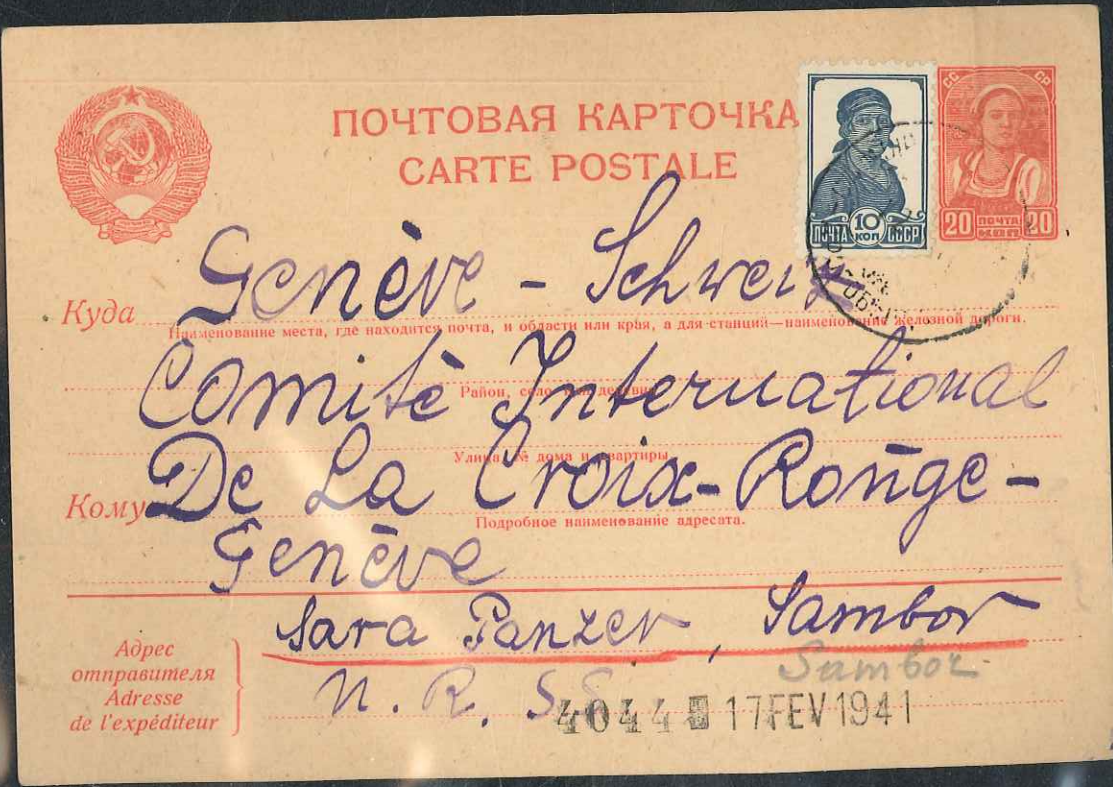 ПОЧТОВАЯ КАРТОЧКА
CARTE POSTALE
СС СР
20 ПОЧТА КОП 20
10 КОП
ПОЧТА СССР
Genève - Schweiz
Куда
Наименование места, где находится почта, и области или края, а для станций—наименование железной дороги.
Comitè International
Район, село или деревня
De La Croix-Roŭge-
Улица, № дома и квартиры
Кому
Подробное наименование адресата.
Genève
Sara Panzer, Sambor
Sambor
Адрес
отправителя
Adresse
de l'expéditeur
N. R. S. S.
4044 17 FEV 1941